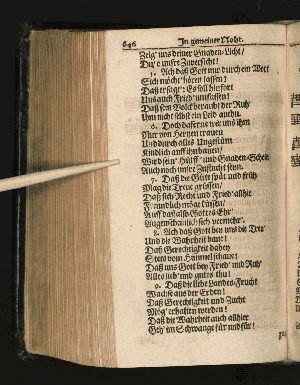 646 In gemeiner Noht.
Zeig' uns deiner Gnaden-Licht/
Du/ unsre Zuversicht!
5. Ach daß Gott nur durch ein Wort
Sich möcht' hören lassen!
Daß er sagt': Es soll hinfort
Uns auch Fried' umfassen!
Daß sein Volck beraucht der Ruh'
Ihm nicht selbst ein Leid anthu.
6. Doch dafern wir uns ihm
Nur von Herzen trauen
Und durch alles Ungestüm
Kindlich auff ihn bauen!
Wird sein' Hülff' und Gnaden-Schein
Auch noch unsre Zuflucht seyn.
7. Daß die Güte spät und früh
Mag die Treue grüssen/
Daß sich Recht und Fried' allhie
Freundlich möge küssen/
Auff daß also Gottes Ehr'
Augenscheinlich sich vermehr'.
8. Ach daß Gott bey uns die Treu'
Und die Wahrheit baut!
Daß Gerechtigkeit dabey
Stets vom Himmel schaut!
Daß uns Gott bey Fried' und Ruh'
Alles lieb' und gutes thu!
9. Daß die liebe Landes-Frucht
Wachs' aus der Erden!
Daß Gerechtigkeit und Zucht
Mög' erhalten werden!
Daß die Wahrheit auch allhier
Geh' im Schwange für und für!